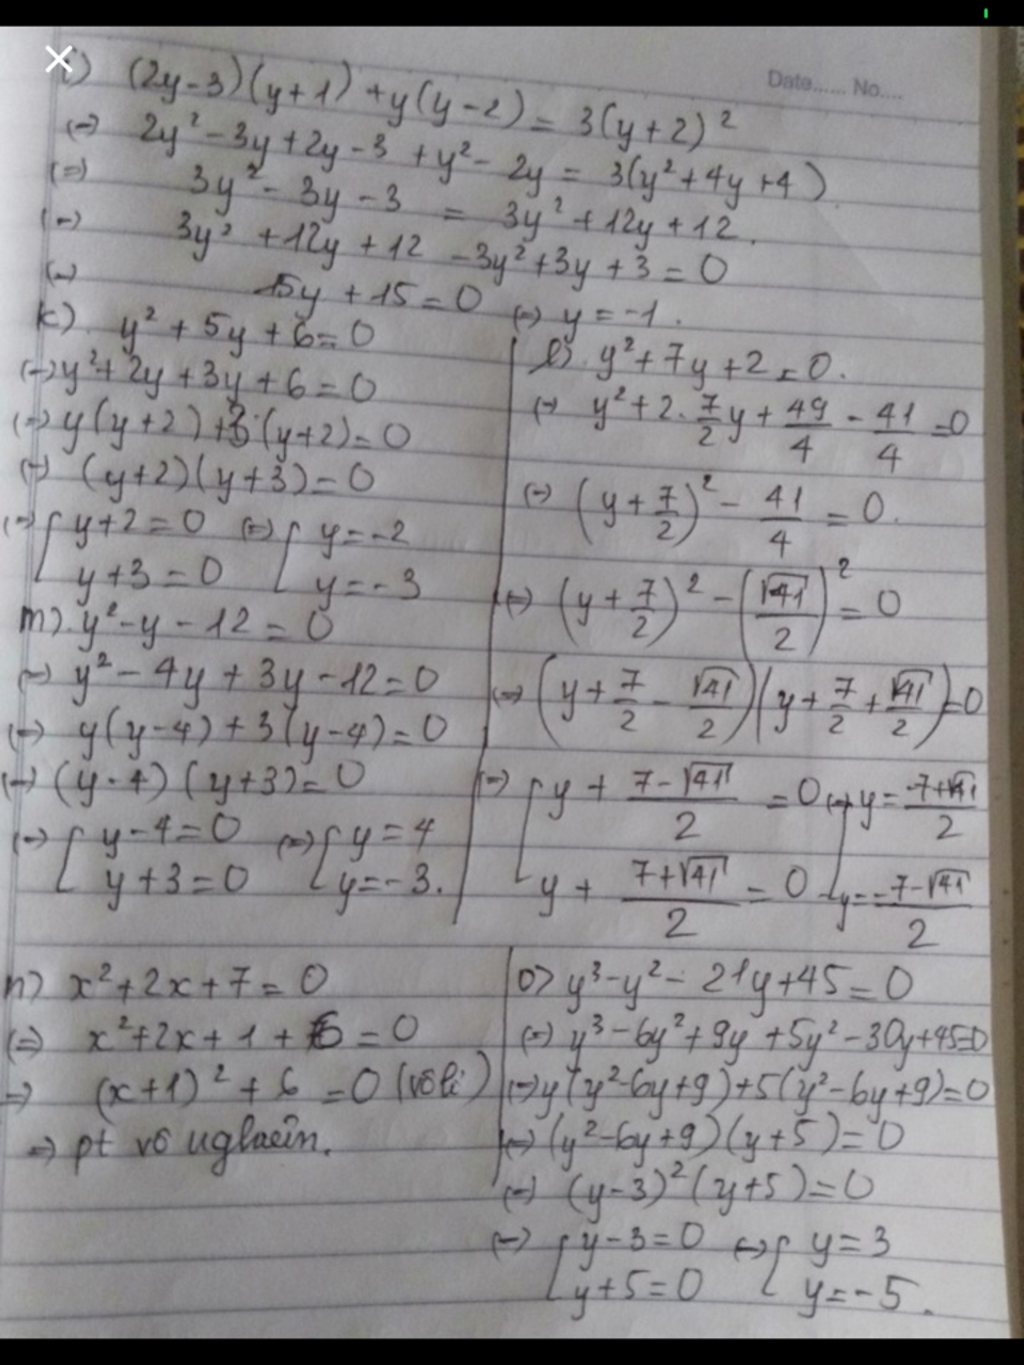 Date...... No....
i) (2y-3)(y+1) + y(y-2) = 3(y+2)²
(=) 2y² - 3y + 2y - 3 + y² - 2y = 3(y² + 4y + 4)
(=) 3y² - 3y - 3 = 3y² + 12y + 12.
(=) 3y² + 12y + 12 - 3y² + 3y + 3 = 0
(=) 15y + 15 = 0 (=) y = -1.
k). y² + 5y + 6 = 0
(=) y² + 2y + 3y + 6 = 0
(=) y(y+2) + 3(y+2) = 0
(=) (y+2)(y+3) = 0
(=) [ y+2 = 0 (=) [ y = -2
y+3 = 0 y = -3
m). y² - y - 12 = 0
(=) y² - 4y + 3y - 12 = 0
(=) y(y-4) + 3(y-4) = 0
(=) (y-4)(y+3) = 0
(=) [ y-4 = 0 (=) [ y = 4
y+3 = 0 y = -3.
l). y² + 7y + 2 = 0.
(=) y² + 2. 7/2 y + 49/4 - 41/4 = 0
(=) (y + 7/2)² - 41/4 = 0.
(=) (y + 7/2)² - (√41/2)² = 0
(=) (y + 7/2 - √41/2)(y + 7/2 + √41/2) = 0
(=) [ y + (7-√41)/2 = 0 (=) [ y = (-7+√41)/2
y + (7+√41)/2 = 0 y = (-7-√41)/2
n) x² + 2x + 7 = 0
(=) x² + 2x + 1 + 6 = 0
=) (x+1)² + 6 = 0 (vô lí)
=) pt vô nghiệm.
o) y³ - y² - 21y + 45 = 0
(=) y³ - 6y² + 9y + 5y² - 30y + 45 = 0
(=) y(y² - 6y + 9) + 5(y² - 6y + 9) = 0
(=) (y² - 6y + 9)(y+5) = 0
(=) (y-3)²(y+5) = 0
(=) [ y-3 = 0 (=) [ y = 3
y+5 = 0 y = -5.